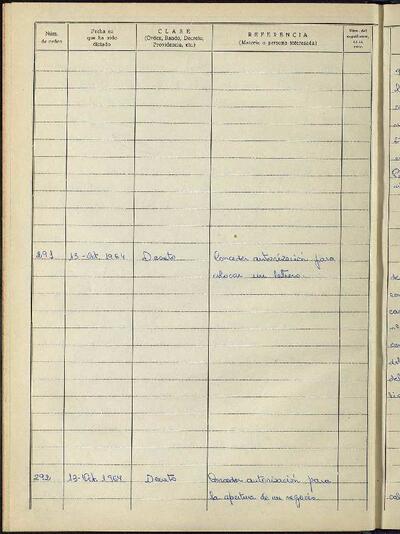 Núm. de orden
Fecha en que ha sido dictado
CLASE
(Orden, Bando, Decreto, Providencia, etc.)
REFERENCIA
(Materia o persona interesada)
Núm. del
291 13-Oct. 1964 Decreto Conceder autorización para
colocar un letrero.
292 13-Oct. 1964 Decreto Conceder autorización para
la apertura de un negocio